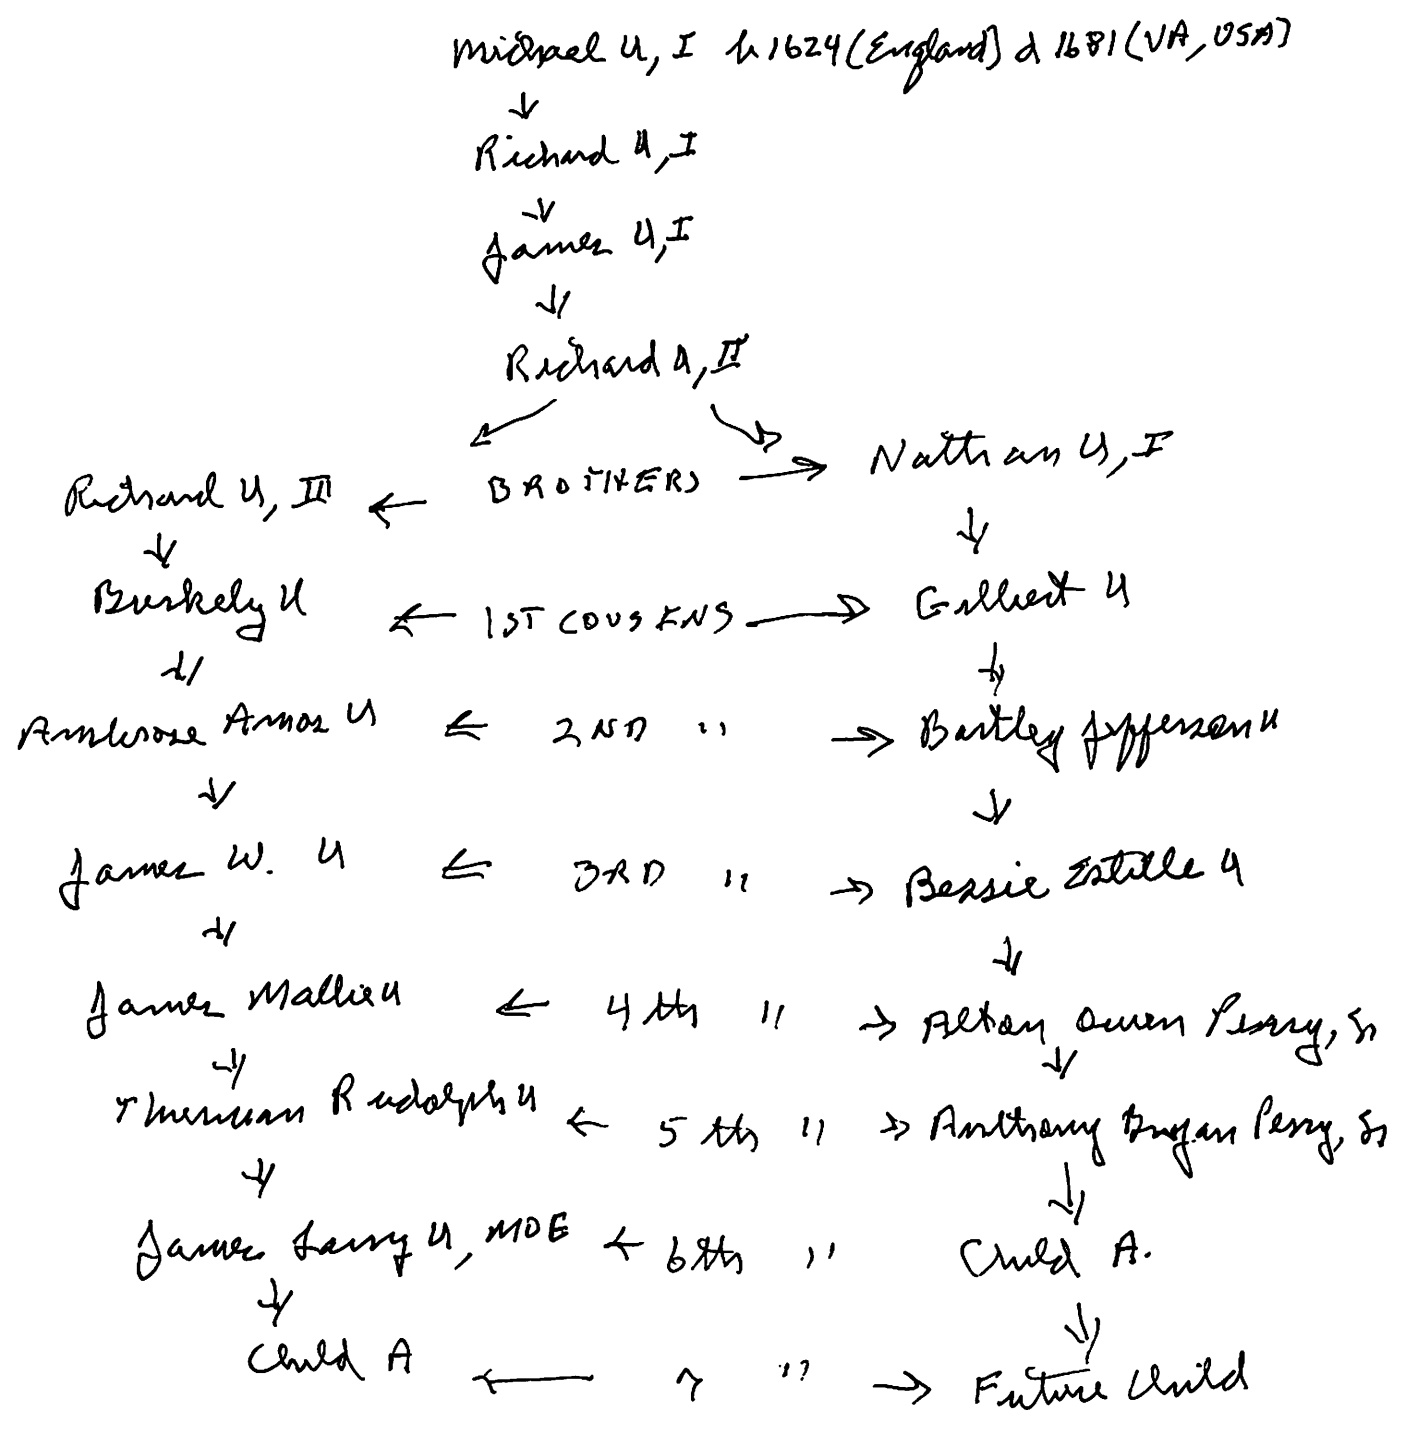 Michael U, I b 1624 (England) d 1681 (VA, USA)
Richard U, I
James U, I
Richard U, II
Richard U, III ← BROTHERS → Nathan U, I
Burkely U ← 1ST COUSENS → Gilbert U
Ambrose Amos U ← 2ND " → Bartley Jefferson U
James W. U ← 3RD " → Bessie Estelle U
James Mallie U ← 4th " → Alton Owen Perry, Sr
Thurman Rudolph U ← 5th " → Anthony Bryan Perry, Sr
James Larry U, MDE ← 6th " Child A.
Child A ← 7 " → Future Child